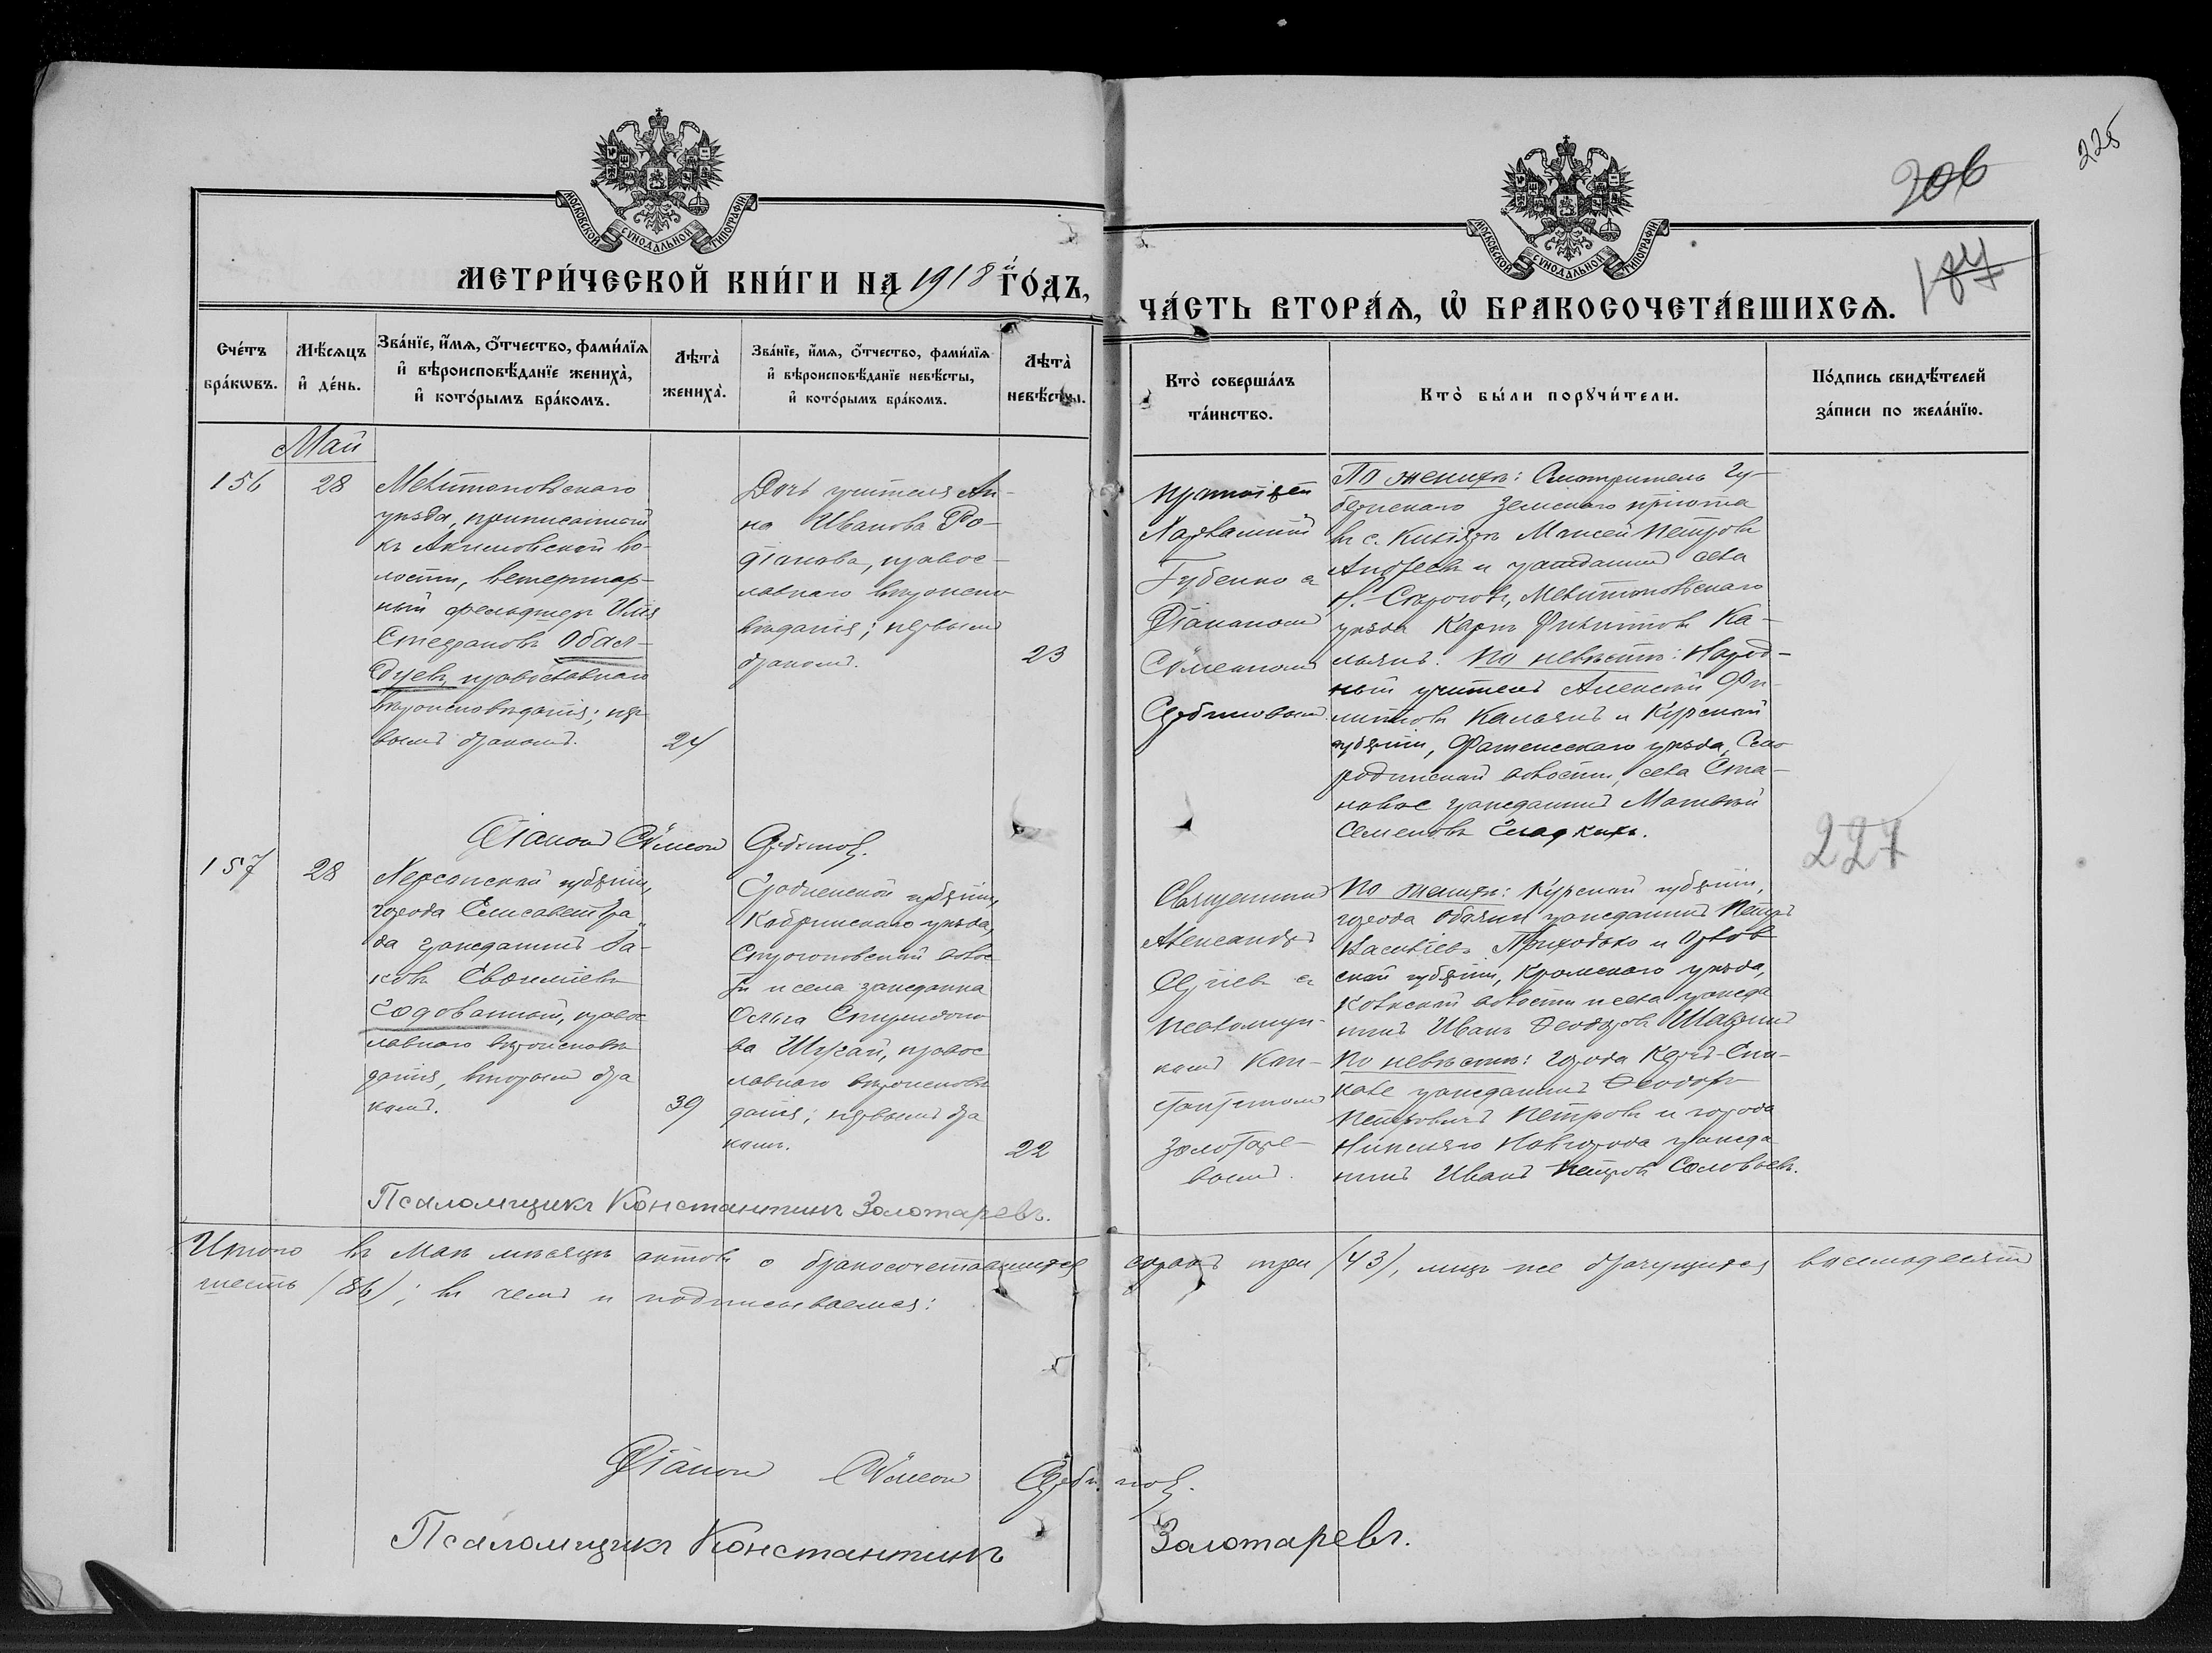 206
225
187
МОСКОВСКОЙ СѴНОДАЛЬНОЙ ТИПОГРАФІИ
МОСКОВСКОЙ СѴНОДАЛЬНОЙ ТИПОГРАФІИ
МЕТРИ́ЧЕСКОЙ КНИ́ГИ НА 1918 й ГО́ДЪ,
ЧА́СТЬ ВТОРА́Ѧ, Ѡ҆ БРАКОСОЧЕТА́ВШИХСѦ.
Сче́тъ
бра́кѡвъ.
Мѣ́сѧцъ
и҆ де́нь.
Зва́нїе, и҆́мѧ, ѻ҆́тчество, фами́лїѧ
и҆ вѣроисповѣ́данїе жениха̀,
и҆ кото́рымъ бра́комъ.
Лѣта̀
жениха̀.
Зва́нїе, и҆́мѧ, ѻ҆́тчество, фами́лїѧ
и҆ вѣроисповѣ́данїе невѣ́сты,
и҆ кото́рымъ бра́комъ.
Лѣта̀
невѣ́сты.
Кто̀ соверша́лъ
та́инство.
Кто̀ бы́ли порꙋчи́тели.
По́дпись свидѣ́телей
за́писи по жела́нїю.
Май
156
28
Мелитопольскаго
уѣзда, приписанный
къ Акимовской во-
лости, ветеринар-
ный фельдшеръ Илія
Стефановъ
православнаго
вѣроисповѣданія; пер
вымъ бракомъ.
24
Дочь учителя Ан-
на Иванова Ро-
діонова, правос-
лавнаго вѣроиспо
вѣданія; первымъ
бракомъ.
23
Протоіерей
Харлампій
Губенко съ
Діакономъ
Сѵмеономъ
По женихѣ: Смотритель Гу-
бернскаго Земскаго пріюта
въ с. Моисей Петровъ
Андреевъ и гражданинъ села
Н. Сѣрогозъ, Мелитопольскаго
уѣзда Карпъ Филиповъ Ка-
льянъ. По невѣстѣ: Народ-
ный учитель Алексѣй Фи-
липовъ Кальянъ и Курской
губерніи, Фатежскаго уѣзда,
волости, села Ста-
новое гражданинъ Матвѣй
Семеновъ Сладкихъ.
Діаконъ Сѵмеонъ
157
28
Херсонской губерніи,
города Елисаветгра
да гражданинъ Іа-
ковъ Евфиміевъ
Годованный, правос
лавнаго вѣроисповѣ
данія, вторымъ бра
комъ.
39
Гродненской губерніи,
Кобринскаго уѣзда,
волос
ти и села гражданка
Ольга Спиридоно
ва Шукай, правос
лавнаго вѣроисповѣ
данія; первымъ бра
комъ.
22
Священникъ
Александръ
Сергіевъ съ
псаломщи-
комъ Кон-
стантиномъ
Золотаре-
вымъ.
По женихѣ: Курской губерніи,
города Обояни гражданинъ Петръ
Васильевъ Приходько и Орлов
ской губерніи, Кромскаго уѣзда,
волости и села гражда
нинъ Иванъ Ѳеодоровъ
По невѣстѣ: города Керчь-Ени-
кале гражданинъ Ѳеодоръ
Петровичъ Петровъ и города
Нижняго Новгорода гражда
нинъ Иванъ Петровъ Соловьевъ.
227
Псаломщикъ Константинъ Золотаревъ.
Итого въ Маѣ мѣсяцѣ актовъ о бракосочетавшихся сорокъ три (43), лицъ же брачущихся восемьдесятъ
шесть (86); въ чемъ и подписываемся:
Діаконъ Сѵмеонъ
Псаломщикъ Константинъ Золотаревъ.